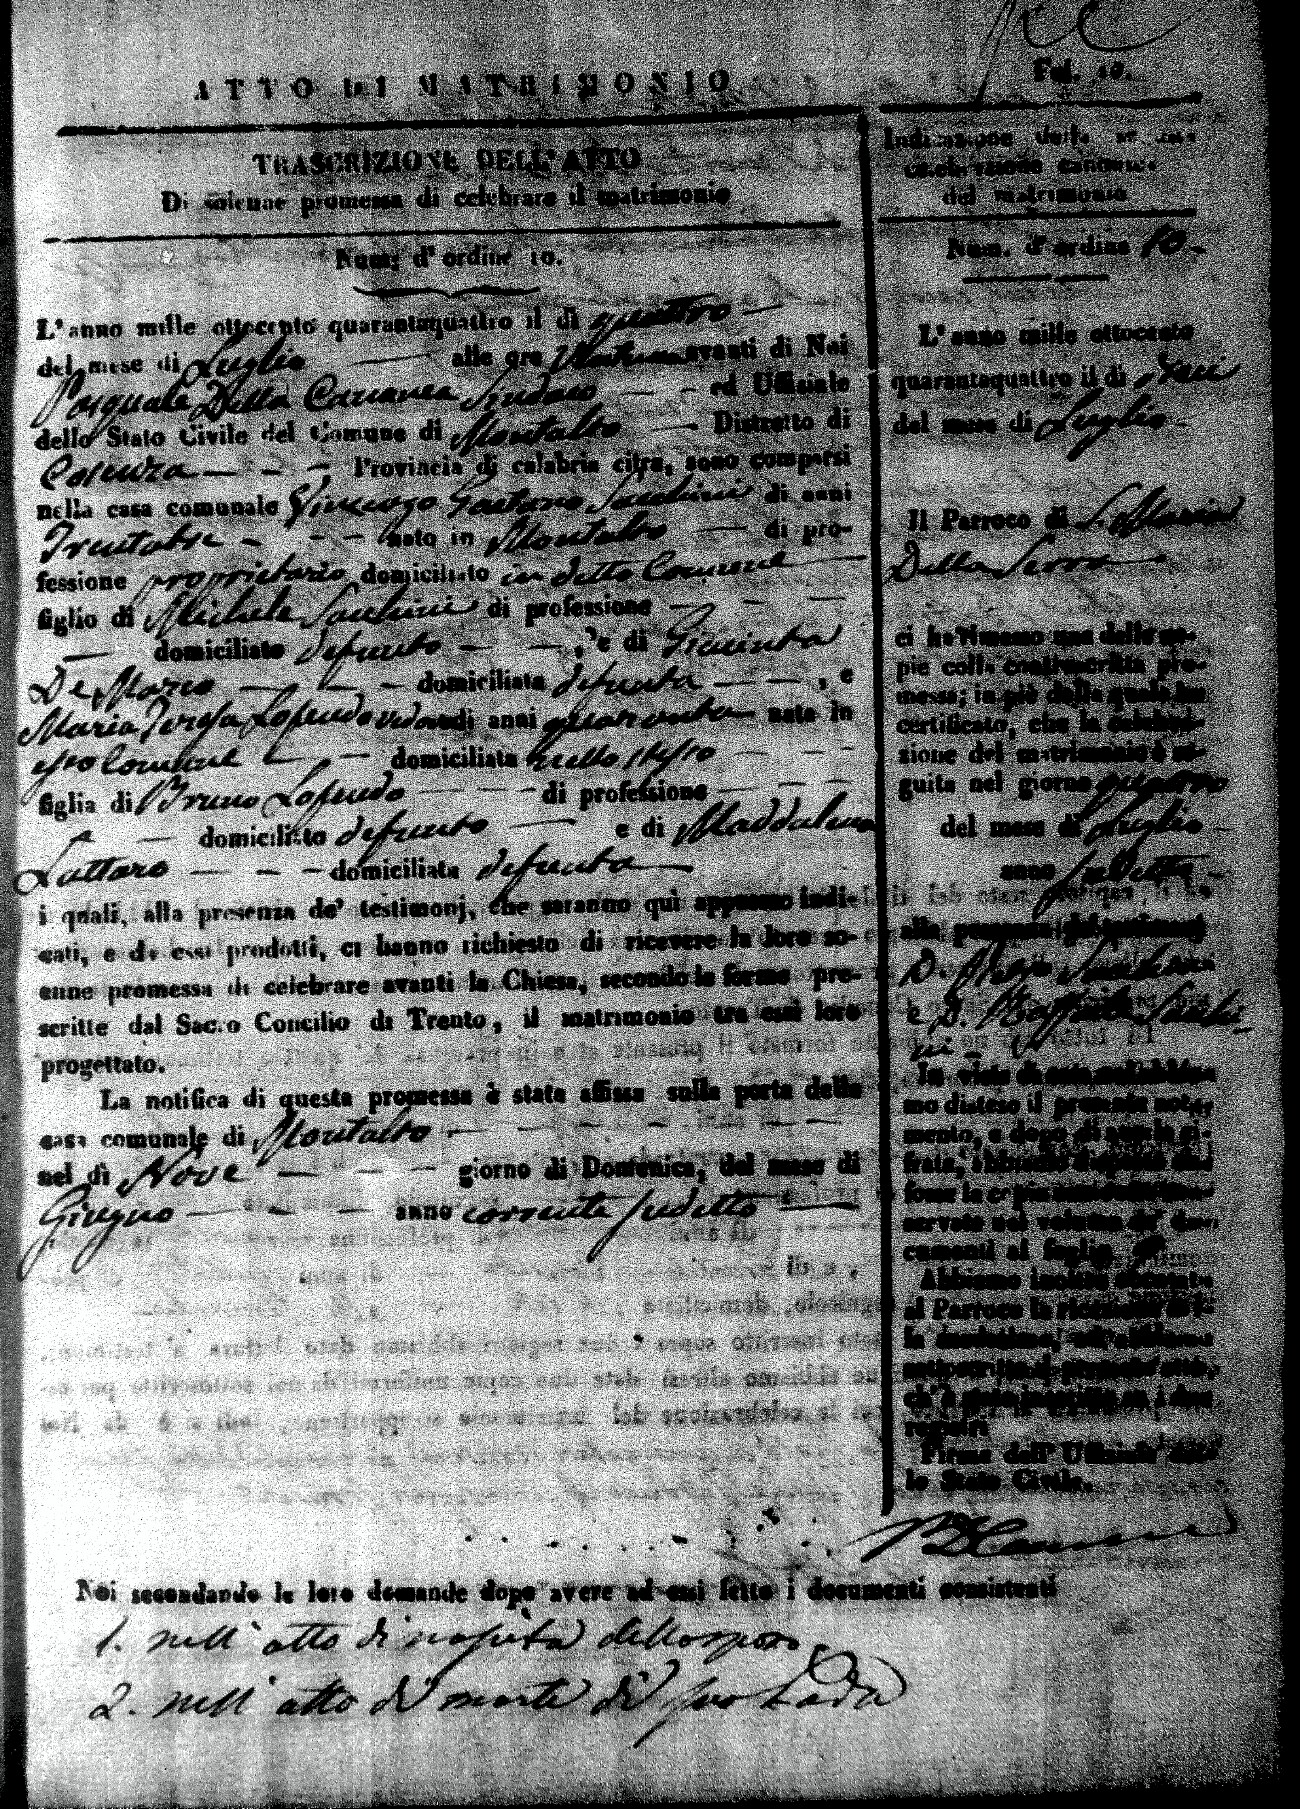 ATTO DI MATRIMONIO
Fol. 10.
TRASCRIZIONE DELL'ATTO
Di solenne promessa di celebrare il matrimonio
Num. d'ordine 10.
L'anno mille ottocento quarantaquattro il dì quattro
del mese di Luglio alle ore avanti di Noi
Pasquale Della Cananea Sindaco ed Uffiziale
dello Stato Civile del Comune di Montalto Distretto di
Cosenza Provincia di calabria citra, sono comparsi
nella casa comunale Vincenzo Gaetano Sacchini di anni
Trentatre nato in Montalto di pro-
fessione proprietario domiciliato in detto Comune
figlio di Michele Sacchini di professione
domiciliato defunto , e di Giacinta
De Marco domiciliata defunta , e
Maria Teresa Lofeudo vedova di anni quaranta nata in
esso Comune domiciliata nello stesso
figlia di Bruno Lofeudo di professione
domiciliato defunto e di Maddalena
Lattaro domiciliata defunta
i quali, alla presenza de' testimonj, che saranno quì appresso indi-
cati, e da essi prodotti, ci hanno richiesto di ricevere la loro so-
enne promessa di celebrare avanti la Chiesa, secondo le forme pre-
scritte dal Sacro Concilio di Trento, il matrimonio tra essi loro
progettato.
La notifica di questa promessa è stata affissa sulla porta della
casa comunale di Montalto
nel dì Nove giorno di Domenica, del mese di
Giugno anno corrente sudetto
Indicazione della
del matrimonio
Num. d'ordine 10
L'anno mille ottocento
quarantaquattro il dì
del mese di Luglio
Il Parroco di S. Maria
Della Serra
ci ha rimesso una delle co-
pie della controscritta pro-
messa; in piè della quale ha
certificato, che la celebra-
zione del matrimonio è se-
guita nel giorno quattro
del mese di Luglio
anno sudetto
alla presenza de' testimonj
D.
e D. Raffaele Sacchi-
ni
In vista di essa noi abbia-
mo disteso il presente nota-
mento, e dopo di averla ci-
frata, abbiamo disposto che
fosse la copia
servata nel volume de' do-
cumenti al foglio
Abbiamo inoltre accusato
al Parroco la ricezione del-
la medesima, ed abbiamo
sottoscritto il presente atto,
ch'è stato inscritto su i due
registri
Firma dell'Uffiziale del-
lo Stato Civile.
Noi secondando le loro domande dopo avere ad essi letto i documenti consistenti
1. nell'atto di nascita dello sposo
2. nell'atto di morte di suo Padre